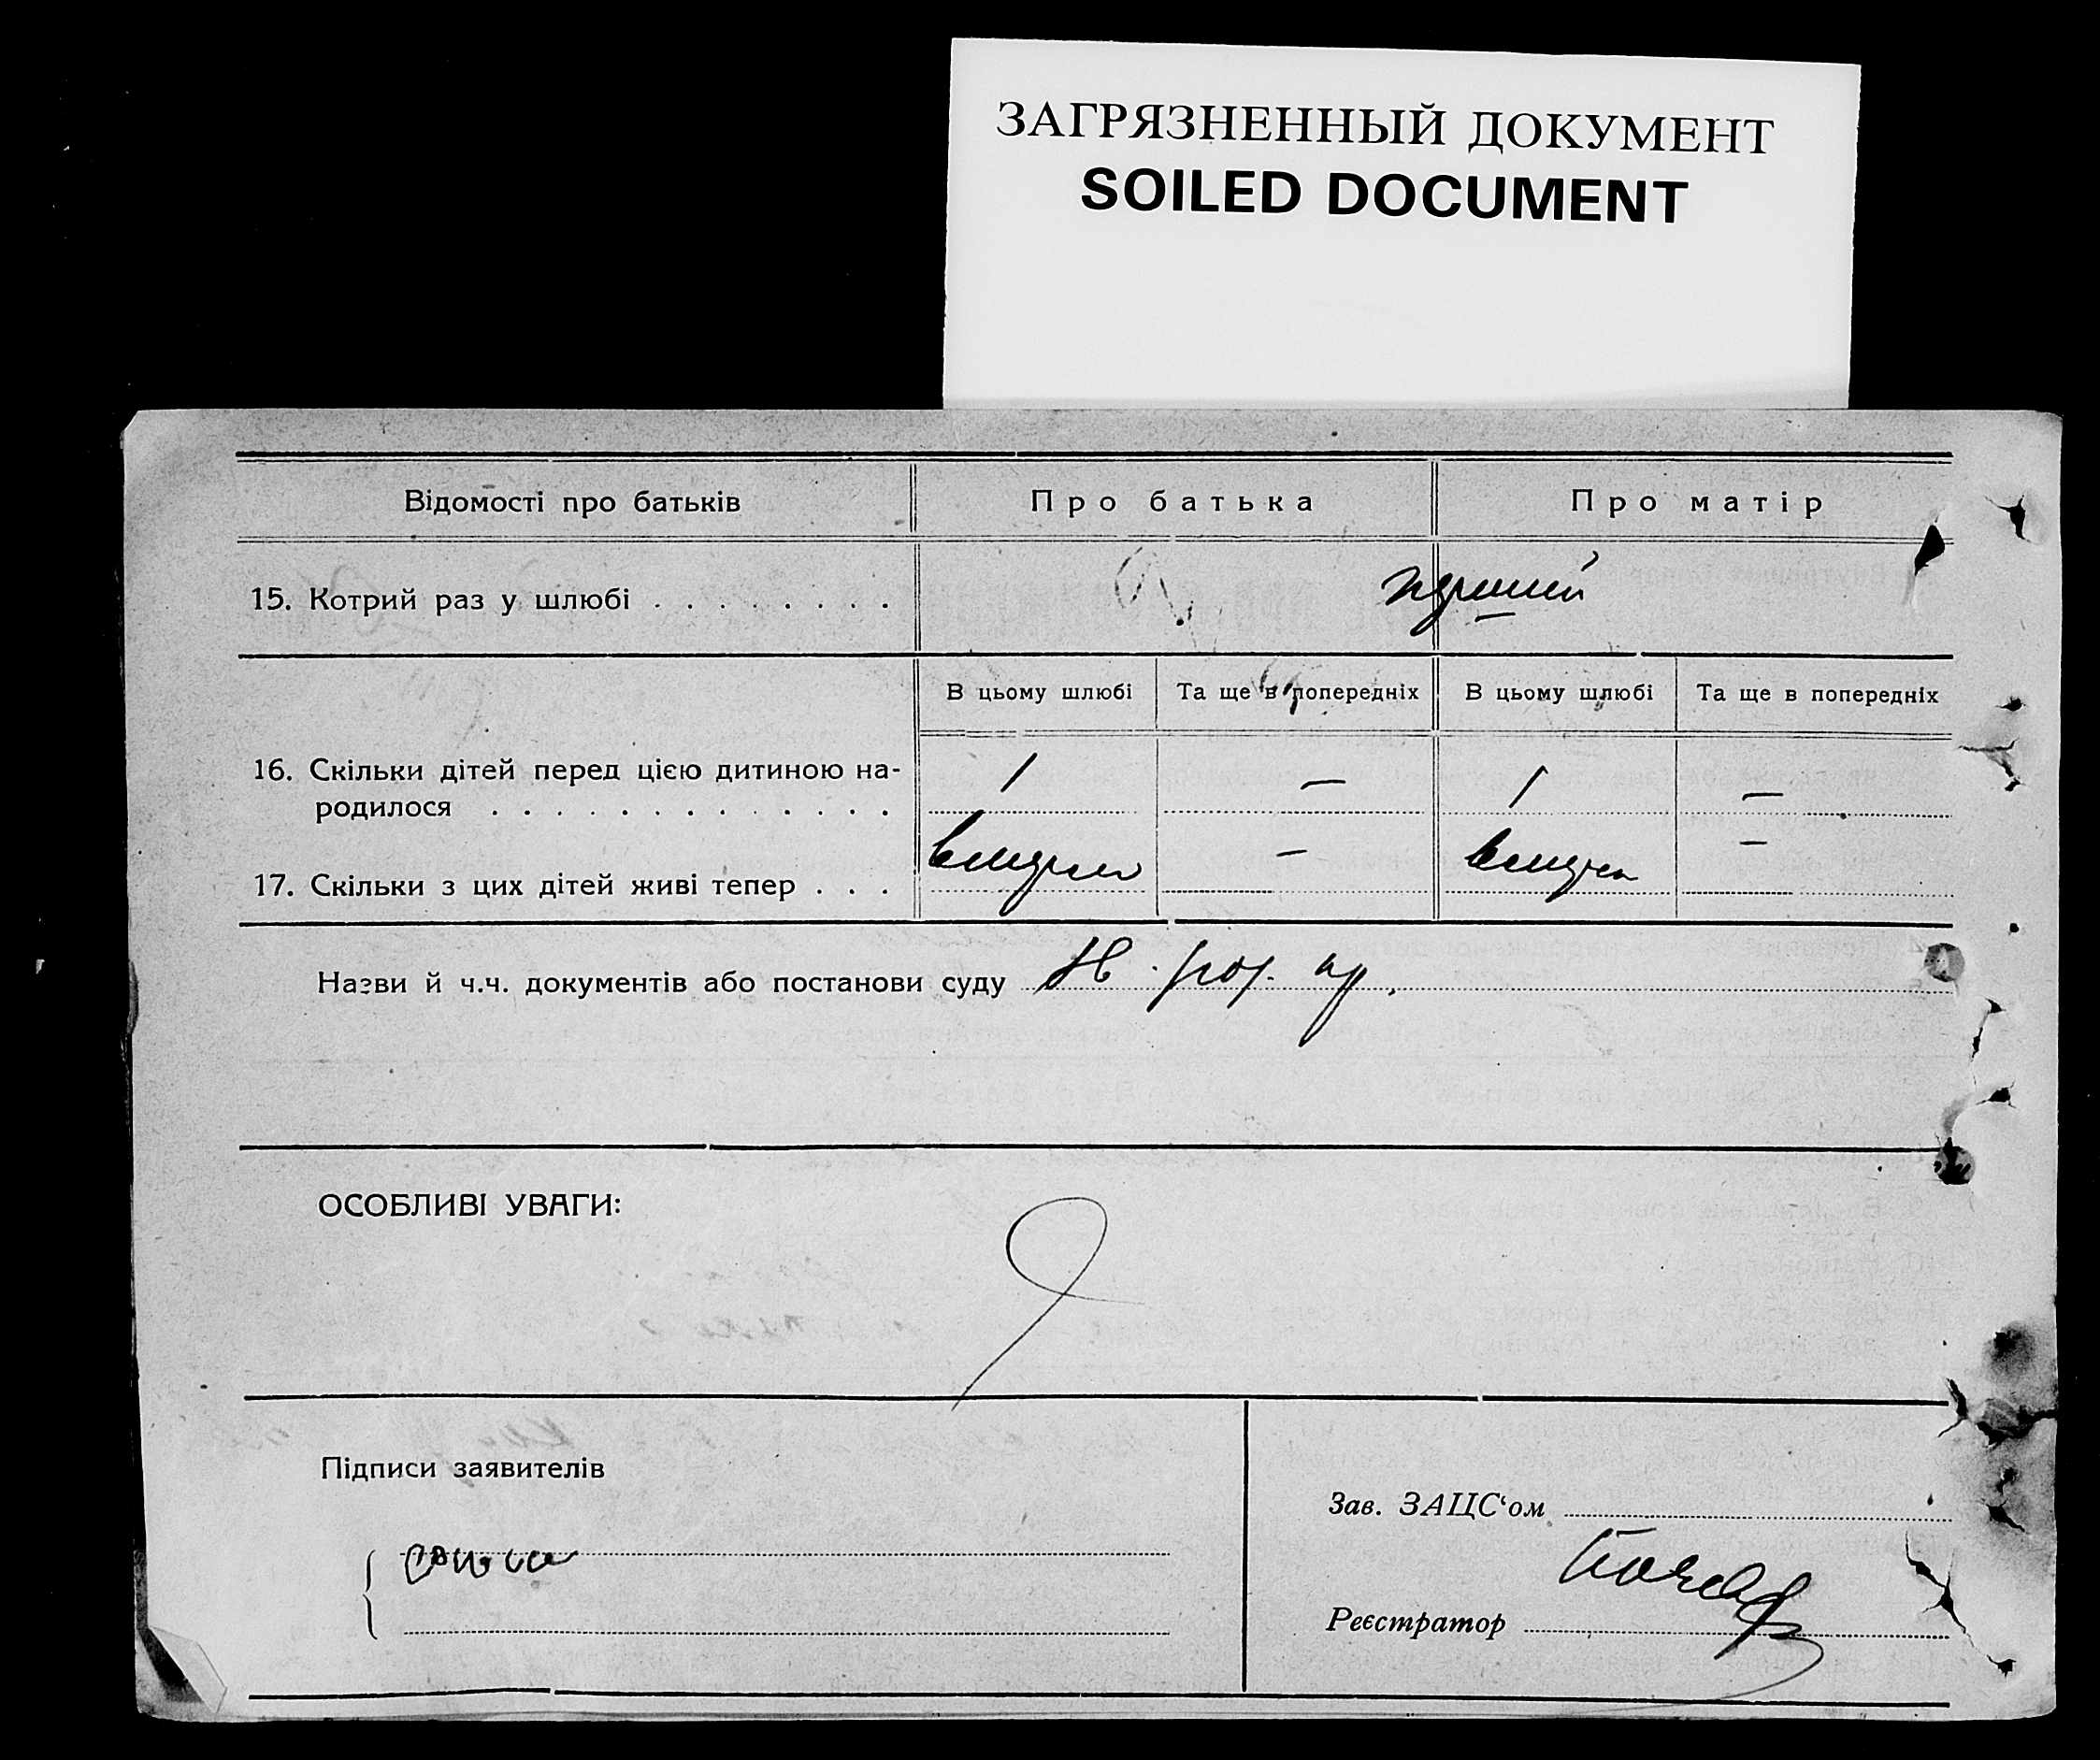 ЗАГРЯЗНЕННЫЙ ДОКУМЕНТ
SOILED DOCUMENT
Відомості про батьків
Про батька
Про матір
15. Котрий раз у шлюбі . . . . . . . .
перший
В цьому шлюбі
Та ще в попередніх
В цьому шлюбі
Та ще в попередніх
16. Скільки дітей перед цією дитиною на-
родилося . . . . . . . . . . . . .
1 — 1 —
17. Скільки з цих дітей живі тепер . . .
вмерла — —
Назви й ч.ч. документів або постанови суду
ОСОБЛИВІ УВАГИ:
Підписи заявителів
Зав. ЗАЦС‘ом
Реєстратор